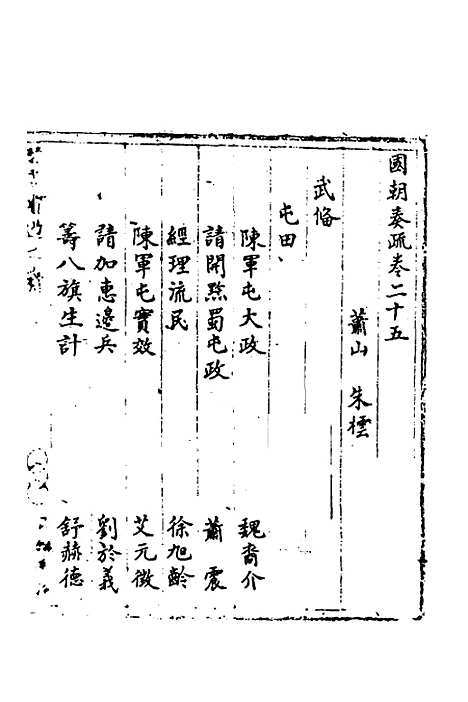 國朝奏疏卷二十五
蕭山 朱橒
武備
屯田
陳軍屯大政 魏裔介
請開黔蜀屯政 蕭震
經理流民 徐旭齡
陳軍屯實效 艾元徵
請加惠邊兵 劉於義
籌八旗生計 舒赫德